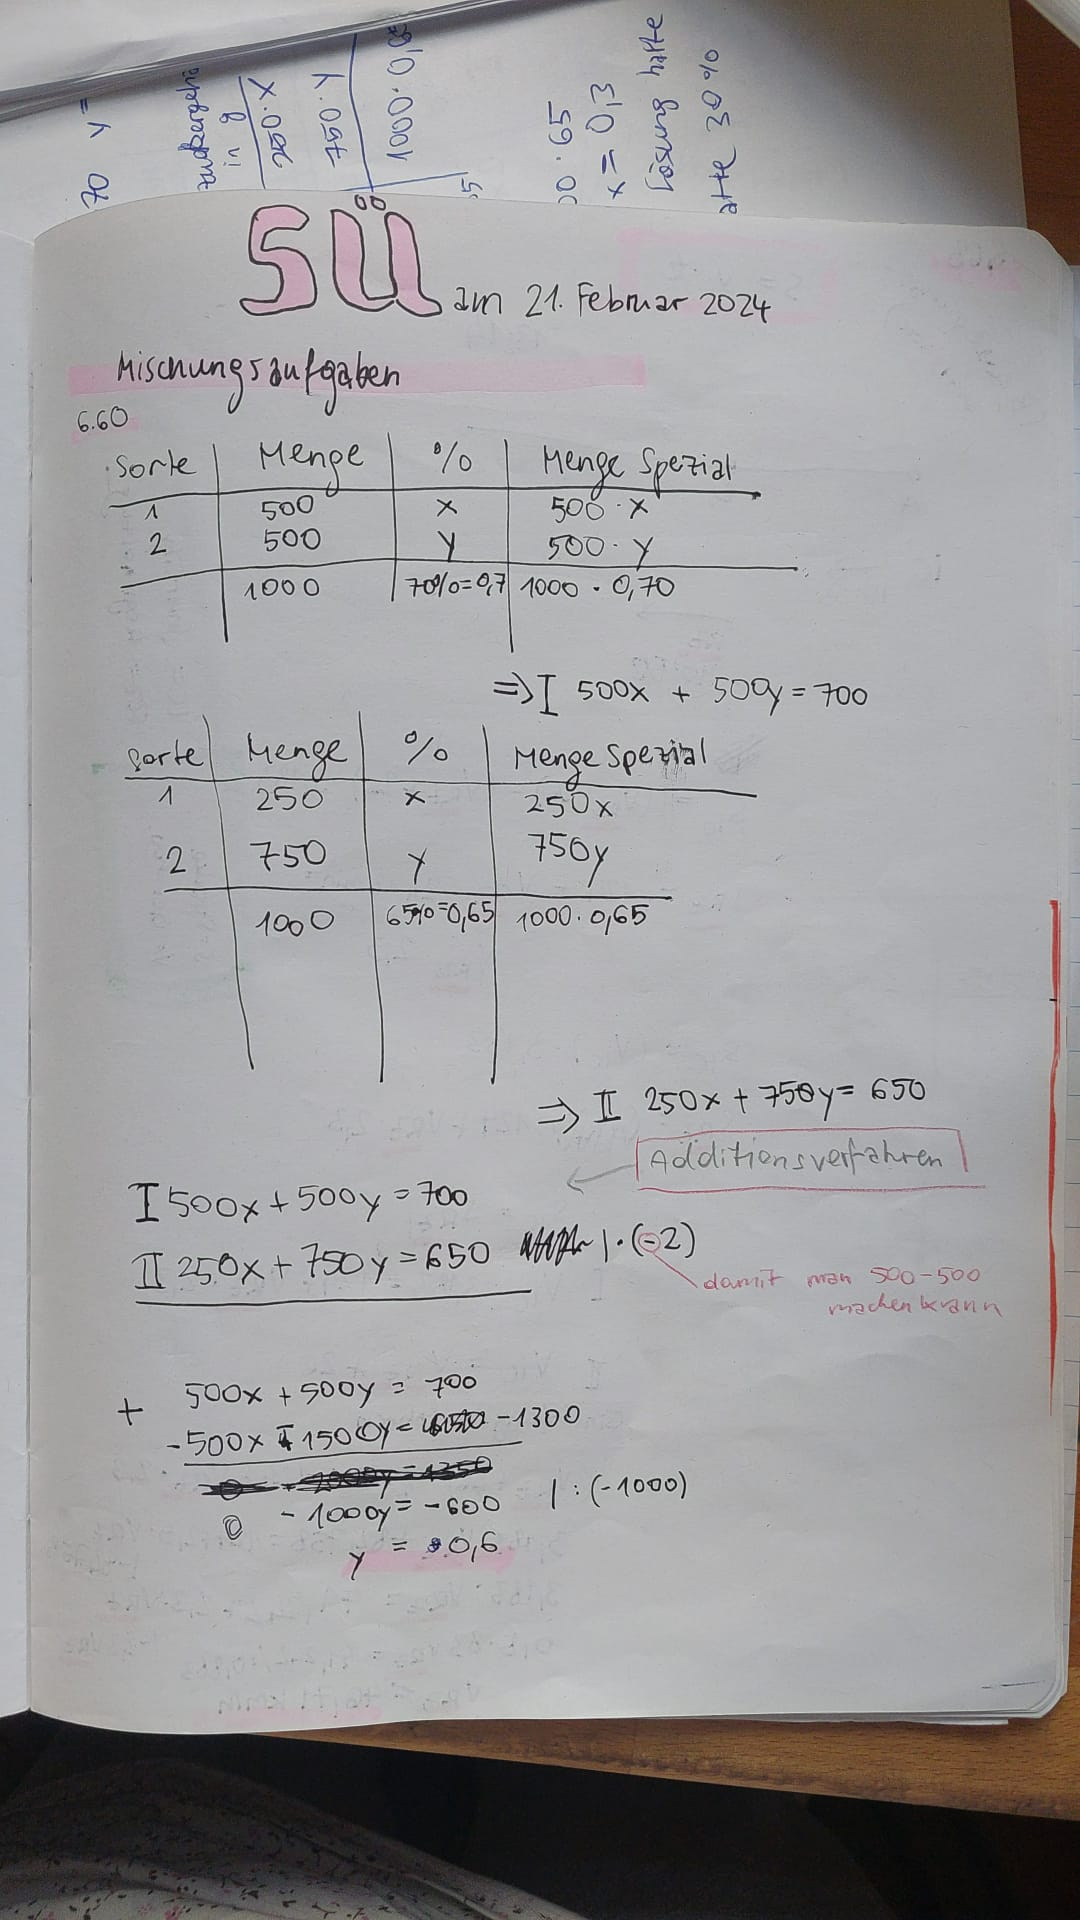 70 y=
in g
250·X
750·Y
1000·0,
00·65
x=0,3
Lösung hatte
30%
SÜ am 21. Februar 2024
Mischungsaufgaben
6.60
Sorte Menge % Menge Spezial
1 500 x 500·x
2 500 y 500·y
1000 70%=0,7 1000·0,70
=> I 500x + 500y = 700
Sorte Menge % Menge Spezial
1 250 x 250x
2 750 y 750y
1000 65%=0,65 1000·0,65
=> II 250x + 750y = 650
Additionsverfahren
I 500x + 500y = 700
II 250x + 750y = 650 |·(-2)
damit man 500-500
machen kann
+ 500x + 500y = 700
-500x - 1500y = -1300
0 -1000y = -600 | : (-1000)
y = 0,6